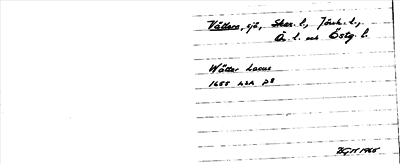 Vättern, sjö, Skar. l., Jönk. l.,
Ör. l. och Östg. l.
Wätter Lacus
1655 LSA P8
1965